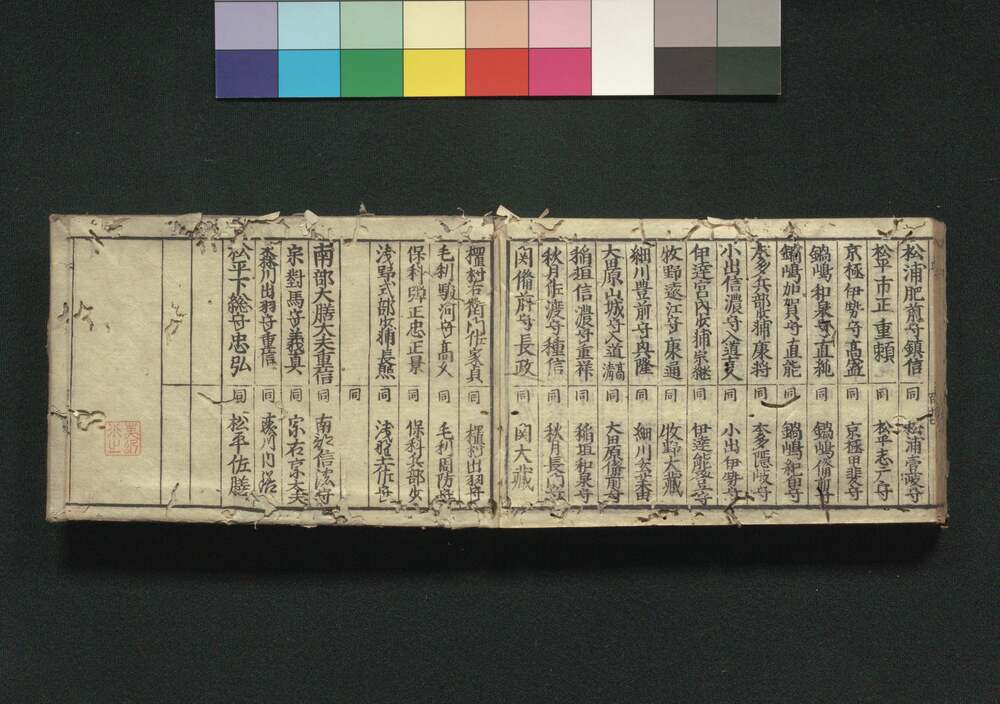 松浦肥前守鎮信 同 松浦壹岐守
松平市正重頼 同 松平志广守
京極伊勢守高盛 同 京極甲斐守
鍋嶋和泉守直純 同 鍋嶋備前守
鍋嶋加賀守直能 同 鍋嶋紀伊守
本多兵部少輔康将 同 本多隠岐守
小出信濃守入道吉久 同 小出伊勢守
伊達宮内少輔宗継 同 伊達能登守
牧野遠江守康通 同 牧野大蔵
細川豊前守興隆 同 細川玄蕃
大田原山城守入道高清 同 大田原備前守
稲垣信濃守重祥 同 稲垣和泉守
秋月佐渡守種信 同 秋月長門守
関備前守長政 同 関大蔵
櫂村右衛門佐家貞 同 櫂村出羽守
毛利駿河守高久 同 毛利周防守
保科弾正忠正景 同 保科兵部少
浅野式部少輔長照 同 浅野土佐守
同
南部大膳大夫重信 同 南部信濃守
宗對馬守義真 同 宗右京大夫
森川出羽守重信 同 森川内膳
松平下総守忠弘 同 松平佐膳